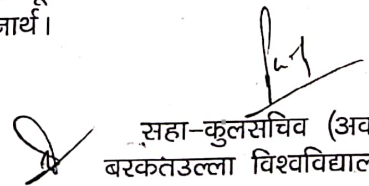 नार्थ।
सहा-कुलसचिव (अव
बरकतउल्ला विश्वविद्याल